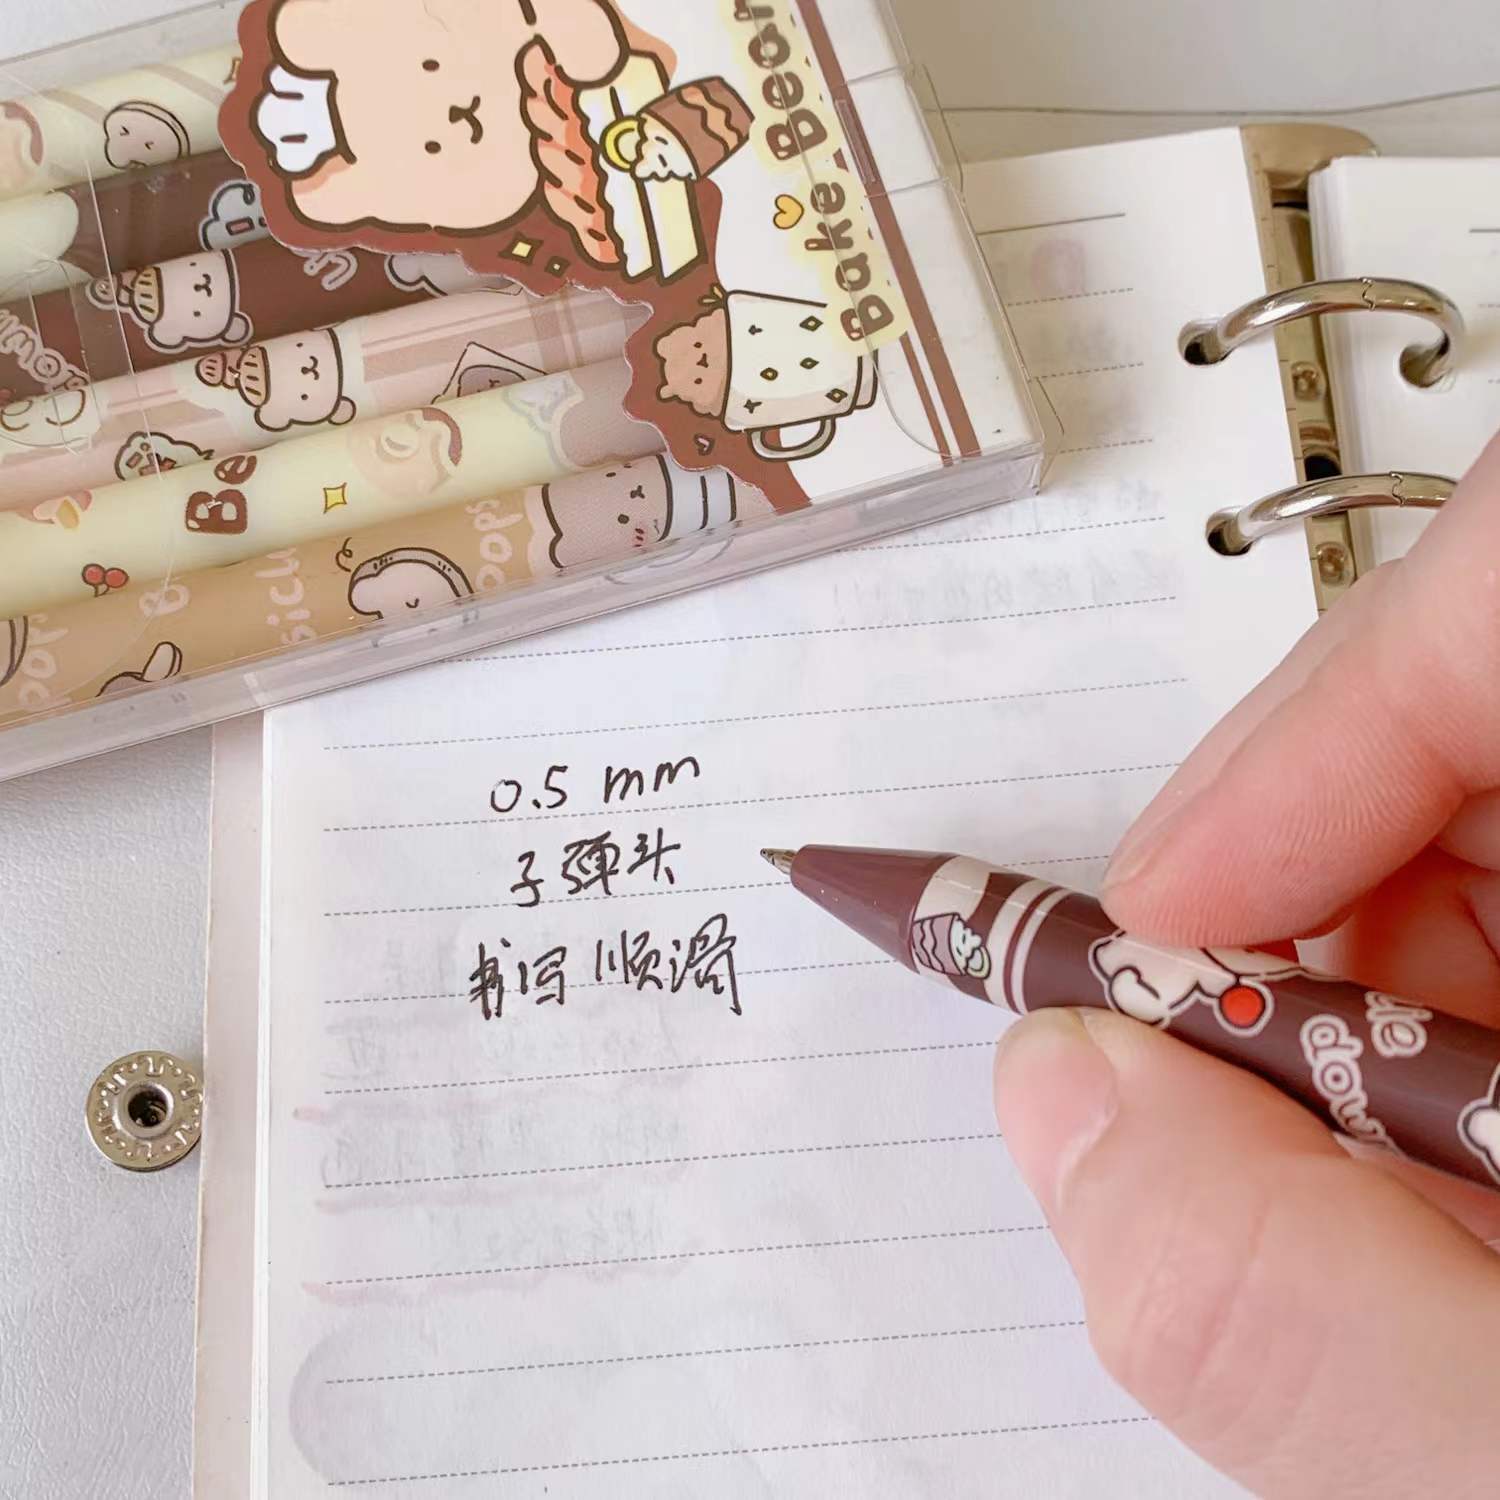 Bake Bear
Be
0.5 mm
子弹头
书写顺滑
down